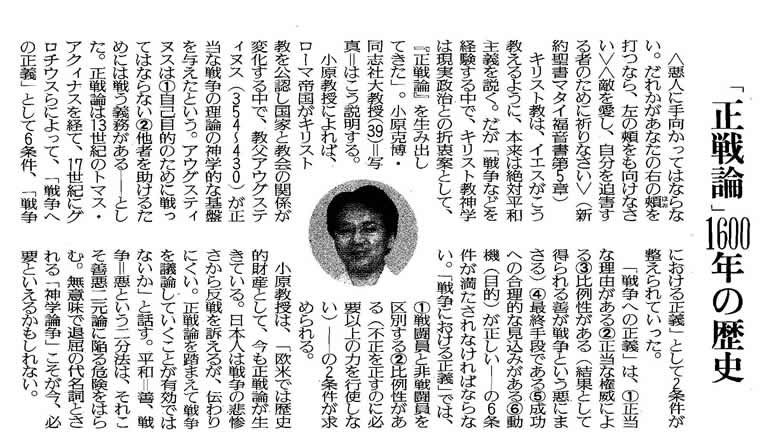 「正戦論」1600年の歴史
〈悪人に手向かってはならな
い。だれかがあなたの右の頬を
打つなら、左の頬をも向けなさ
い〉〈敵を愛し、自分を迫害す
る者のために祈りなさい〉（新
約聖書マタイ福音書第5章）
キリスト教は、イエスがこう
教えるように、本来は絶対平和
主義を説く。だが「戦争などを
経験する中で、キリスト教神学
は現実政治との折衷案として、
『正戦論』を生み出し
てきた」。小原克博・
同志社大教授（39）＝写
真＝はこう説明する。
小原教授によれば、
ローマ帝国がキリスト
教を公認し国家と教会の関係が
変化する中で、教父アウグステ
ィヌス（354〜430）が正
当な戦争の理論の神学的な基盤
を与えたという。アウグスティ
ヌスは①自己目的のために戦っ
てはならない②他者を助けるた
めには戦う義務がある――とし
た。正戦論は13世紀のトマス・
アクィナスを経て、17世紀にグ
ロチウスらによって、「戦争へ
の正義」として6条件、「戦争
における正義」として2条件が
整えられていった。
「戦争への正義」は、①正当
な理由がある②正当な権威によ
る③比例性がある（結果として
得られる善が戦争という悪にま
さる）④最終手段である⑤成功
への合理的な見込みがある⑥動
機（目的）が正しい――の6条
件が満たされなければならな
い。「戦争における正義」では、
①戦闘員と非戦闘員を
区別する②比例性があ
る（不正を正すのに必
要以上の力を行使しな
い）――の2条件が求
められる。
小原教授は、「欧米では歴史
的財産として、今も正戦論が生
きている。日本人は戦争の悲惨
さから反戦を訴えるが、伝わり
にくい。正戦論を踏まえて戦争
を議論していくことが有効では
ないか」と話す。平和＝善、戦
争＝悪という二分法は、それこ
そ善悪二元論に陥る危険をはら
む。無意味で退屈の代名詞とさ
れる「神学論争」こそが今、必
要といえるかもしれない。